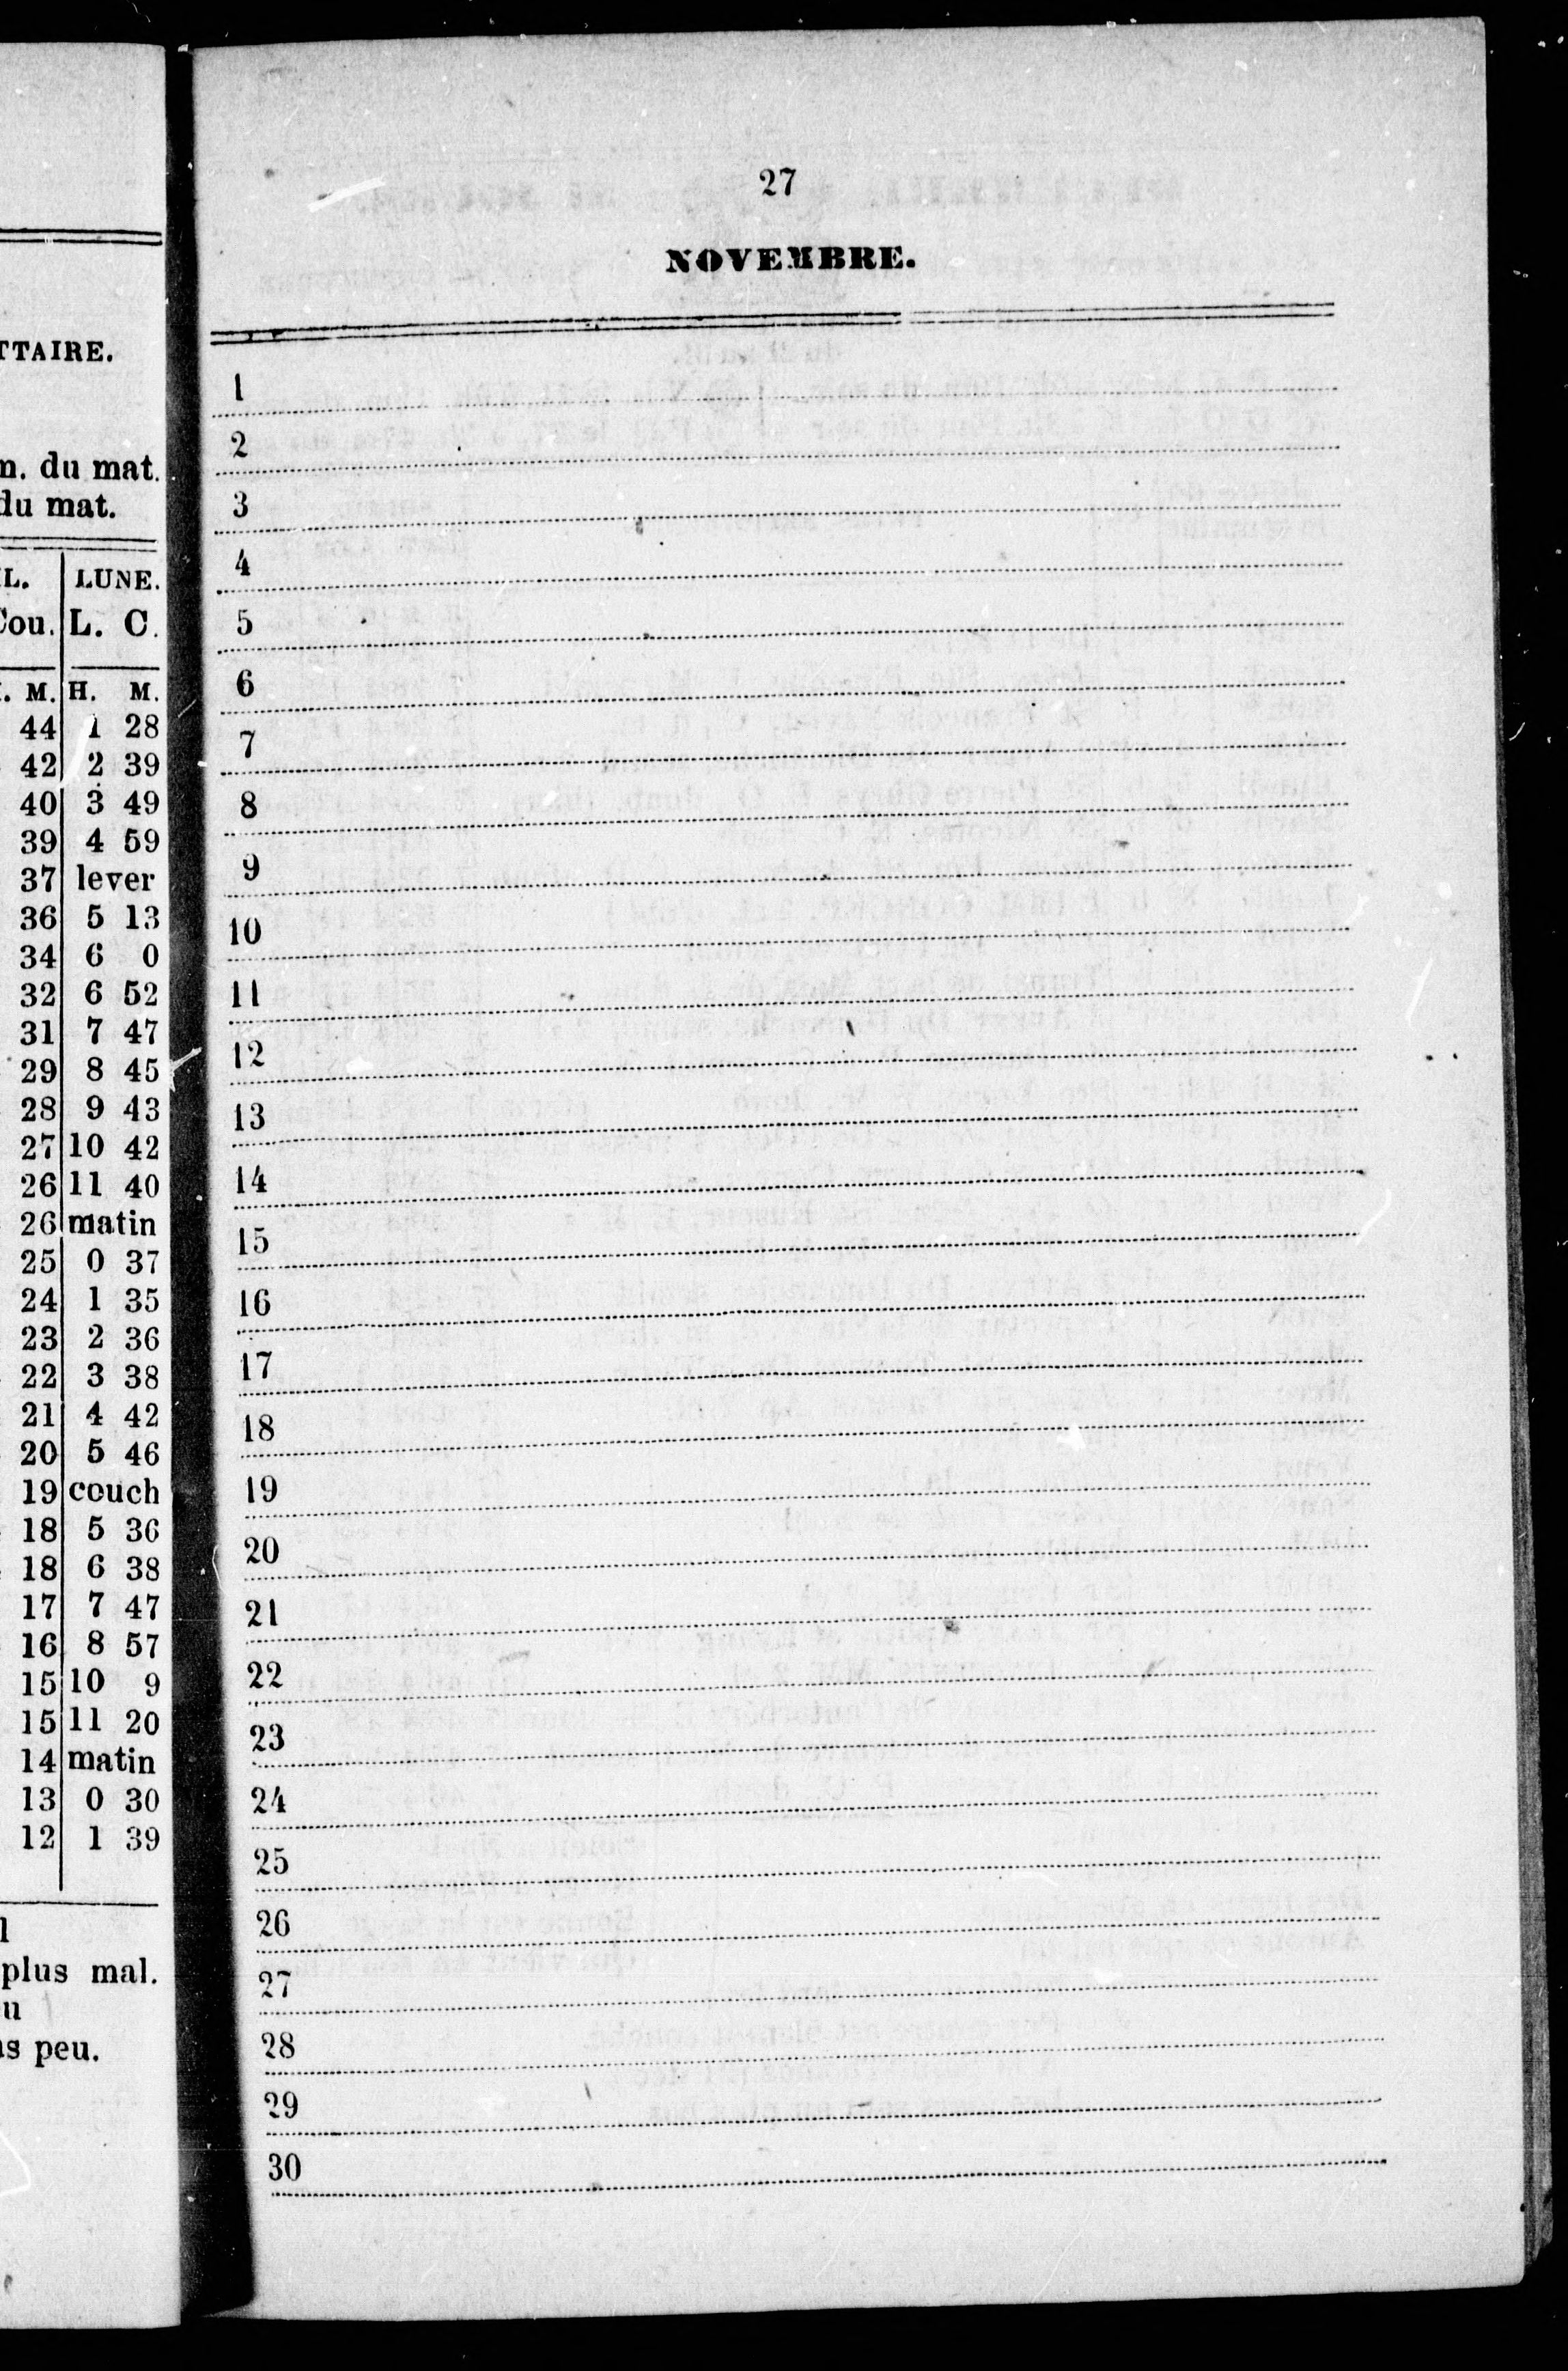 TTAIRE.
n. du mat.
du mat.
L. LUNE.
Cou. L. C.
. M. H. M.
44 1 28
42 2 39
40 3 49
39 4 59
37 lever
36 5 13
34 6 0
32 6 52
31 7 47
29 8 45
28 9 43
27 10 42
26 11 40
26 matin
25 0 37
24 1 35
23 2 36
22 3 38
21 4 42
20 5 46
19 couch
18 5 36
18 6 38
17 7 47
16 8 57
15 10 9
15 11 20
14 matin
13 0 30
12 1 39
l
plus mal.
u
s peu.
27
NOVEMBRE.
1
2
3
4
5
6
7
8
9
10
11
12
13
14
15
16
17
18
19
20
21
22
23
24
25
26
27
28
29
30